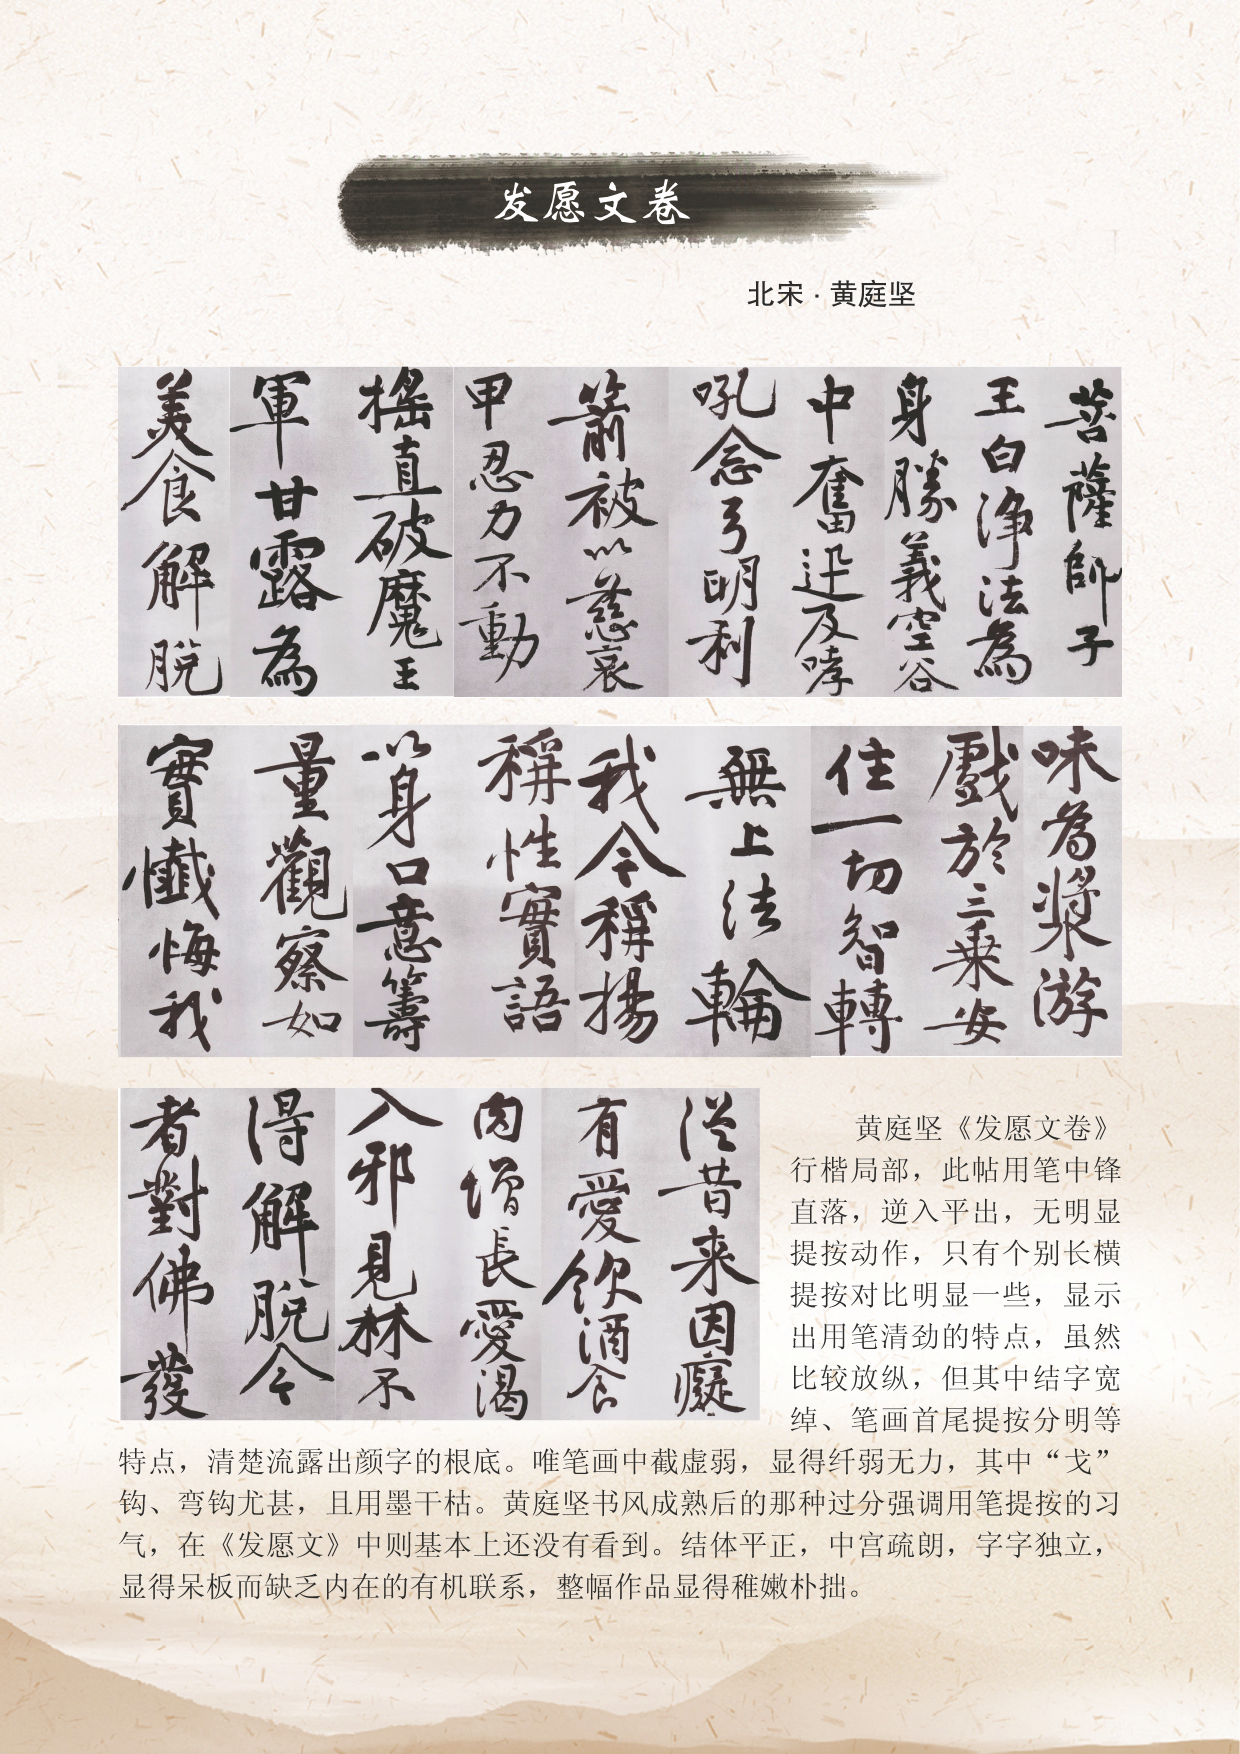 发愿文卷
北宋·黄庭坚
菩薩師子
王白淨法為
身勝義空谷
中奮迅及哮
吼念弓明利
箭被以慈哀
甲忍力不動
搖直破魔王
軍甘露為
美食解脫
味為漿游
戲於三乗安
住一切智轉
無上法輪
我今稱揚
稱性實語
以身口意籌
量觀察如
實懺悔我
從昔来因癡
有愛飲酒食
肉增長愛渴
入邪見林不
得解脫今
者對佛發
黄庭坚《发愿文卷》
行楷局部，此帖用笔中锋
直落，逆入平出，无明显
提按动作，只有个别长横
提按对比明显一些，显示
出用笔清劲的特点，虽然
比较放纵，但其中结字宽
绰、笔画首尾提按分明等
特点，清楚流露出颜字的根底。唯笔画中截虚弱，显得纤弱无力，其中“戈”
钩、弯钩尤甚，且用墨干枯。黄庭坚书风成熟后的那种过分强调用笔提按的习
气，在《发愿文》中则基本上还没有看到。结体平正，中宫疏朗，字字独立，
显得呆板而缺乏内在的有机联系，整幅作品显得稚嫩朴拙。